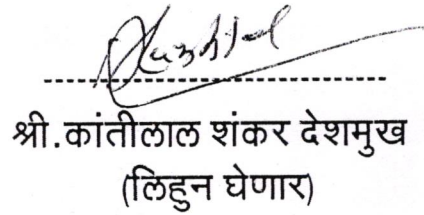 श्री.कांतीलाल शंकर देशमुख
(लिहुन घेणार)